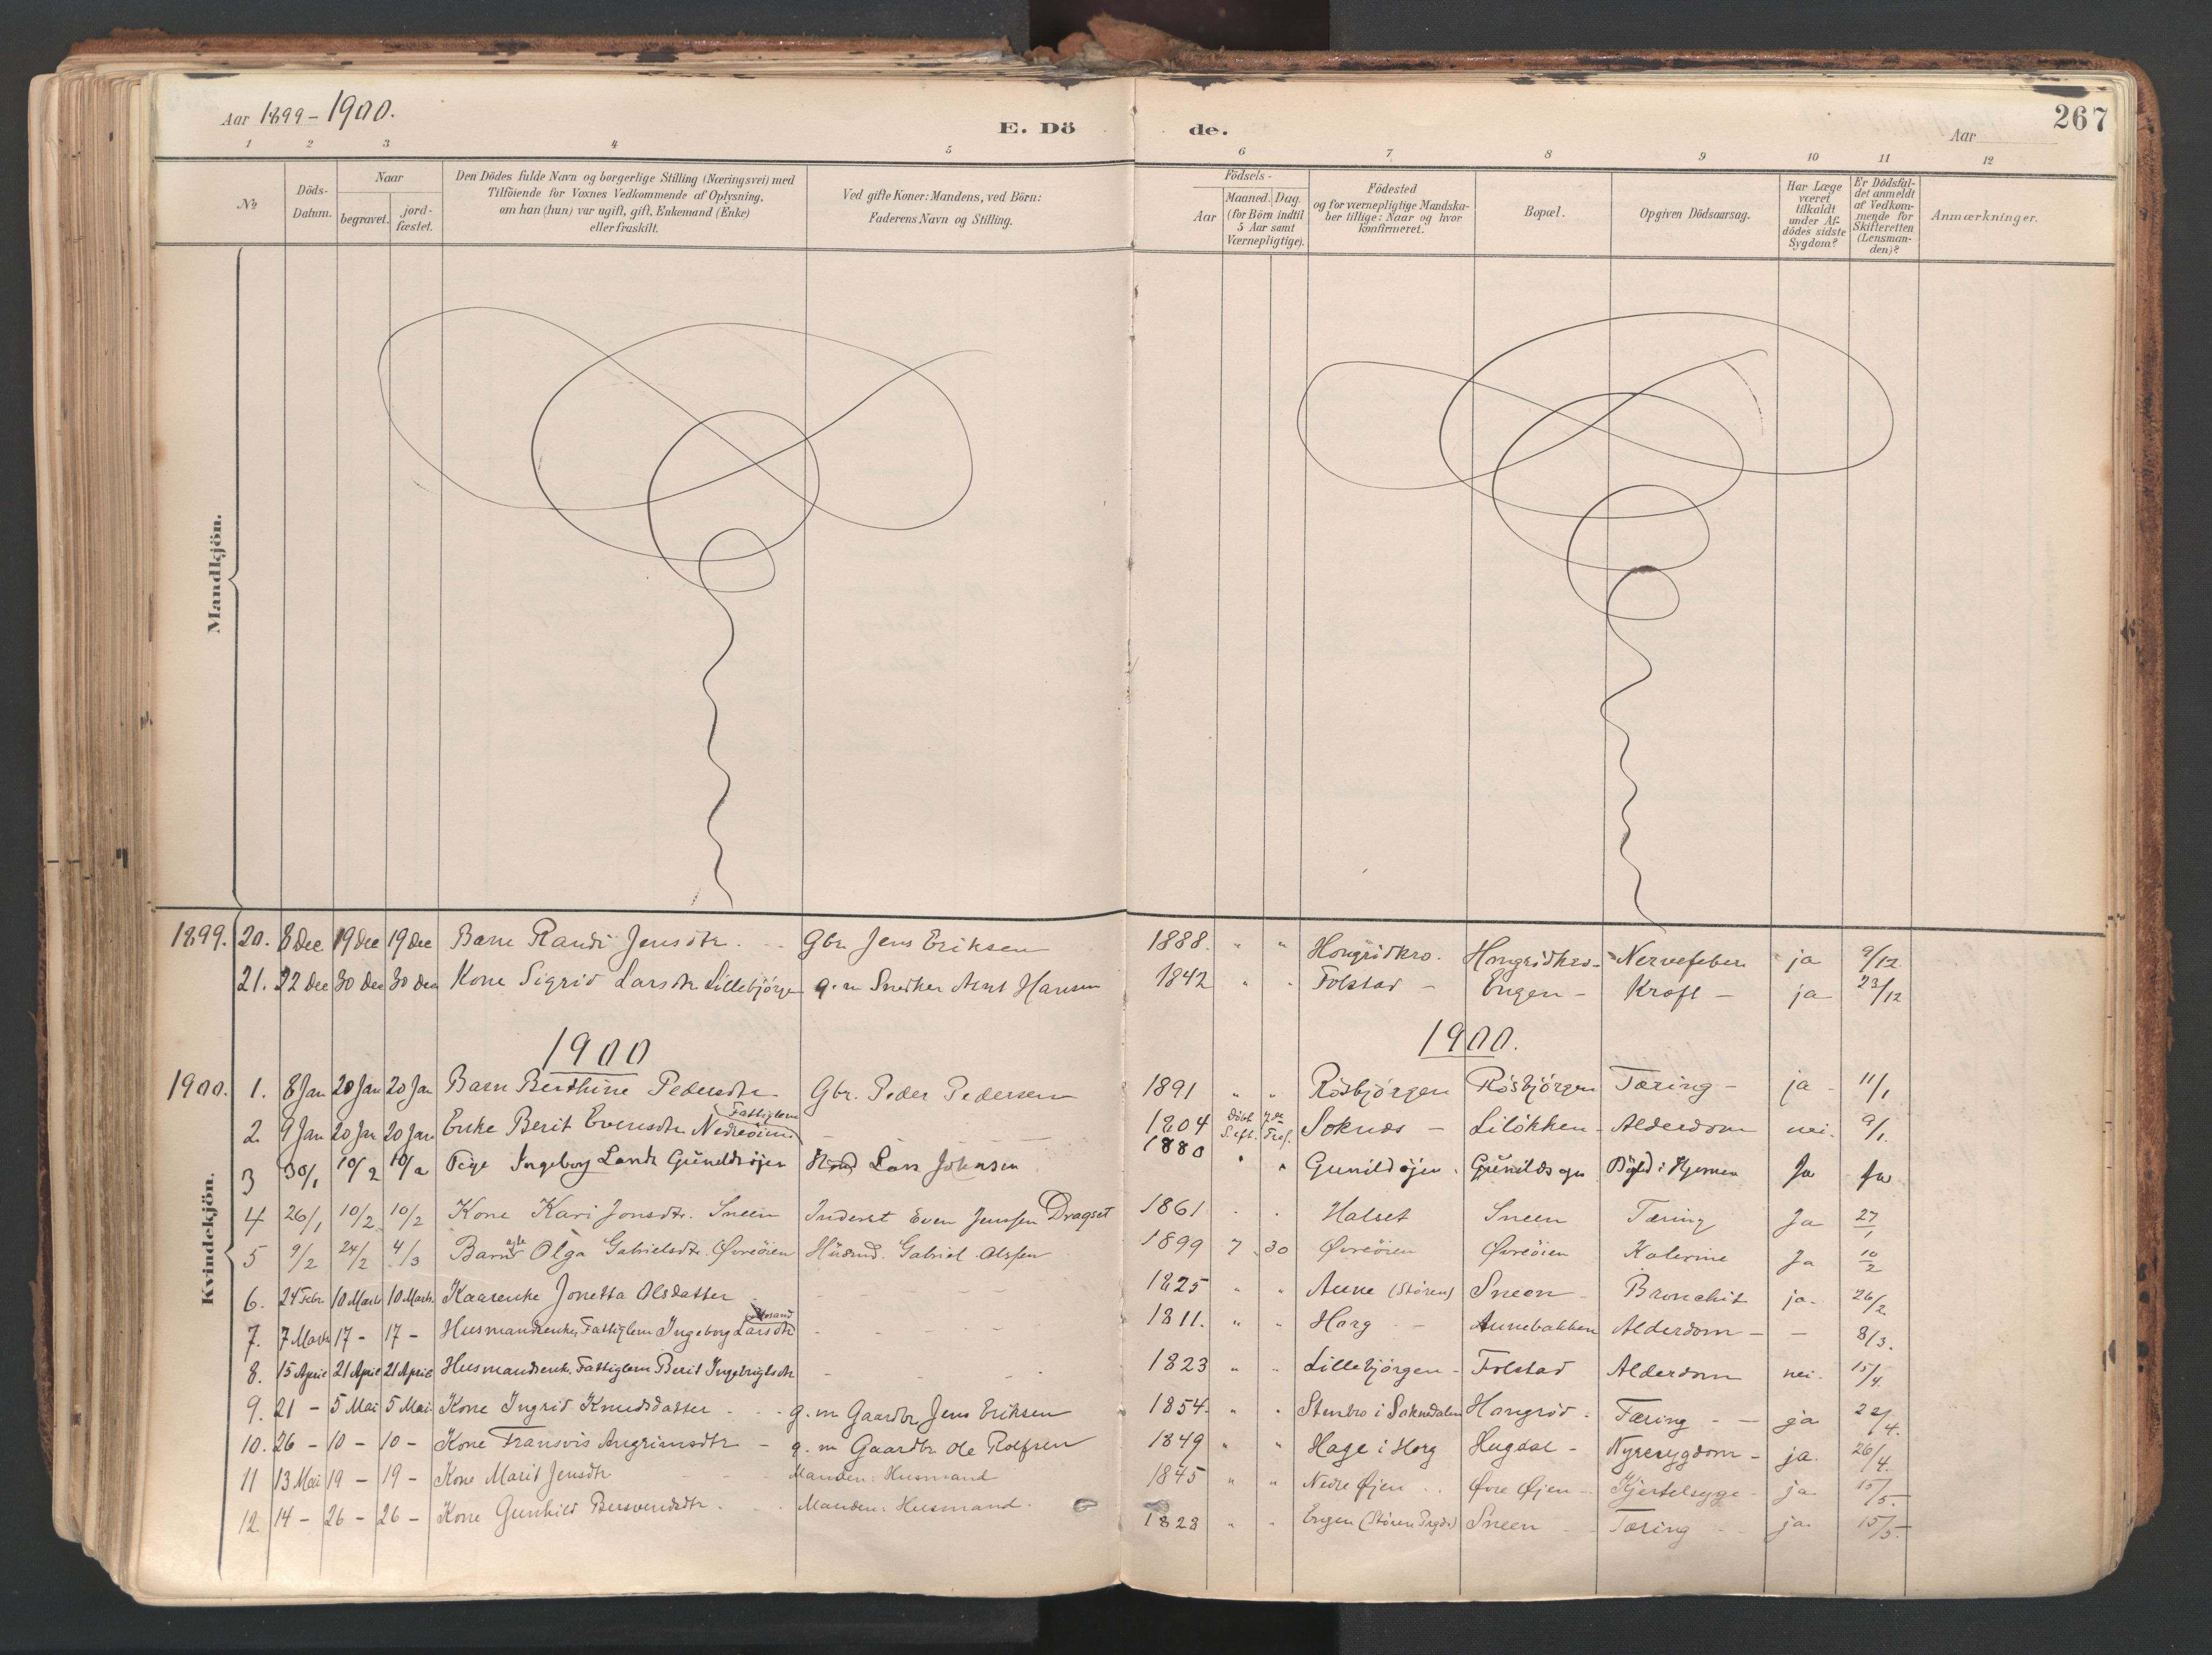 Aar 1899 - 1900.
E. Dö de.
Aar
267
1 2 3 4 5 6 7 8 9 10 11 12
No
Döds-Datum.
Naar
begravet.
jord-fæstet.
Den Dödes fulde Navn og borgerlige Stilling (Næringsvei) med
Tilföiende for Voxnes Vedkommende af Oplysning,
om han (hun) var ugift, gift, Enkemand (Enke)
eller fraskilt.
Ved gifte Koner: Mandens, ved Börn:
Faderens Navn og Stilling.
Födsels-
Aar
Maaned. Dag.
(for Börn indtil
5 Aar samt
Værnepligtige).
Födested
og for værnepligtige Mandska-
ber tillige: Naar og hvor
konfirmeret.
Bopæl.
Opgiven Dödsaarsag.
Har Læge
været
tilkaldt
under Af-
dödes sidste
Sygdom?
Er Dödsfal-
det anmeldt
af Vedkom-
mende for
Skifteretten
(Lensman-
den)?
Anmærkninger.
Mandkjön.
Kvindekjön.
1899. 20. 8 Dec 19 Dec 19 Dec Barn Randi Jensdtr. Gbr. Jens Eriksen 1888. " " Hongsidkro. Hongsidkro - Nervefeber ja 9/12.
21. 22 Dec 30 Dec 30 Dec Kone Sigrid Larsdtr Lillebjörge g. m Snedker Arnt Hansen 1842 " " Folstad - Engen - Kræft - ja 23/12
1900 1900.
1900. 1. 8 Jan 20 Jan 20 Jan Barn Berthine Pedersdtr Gbr. Peder Pedersen 1891 " " Rösbjörgen Rösbjörgen Tæring - ja - 11/1
2 9 Jan 20 Jan 20 Jan Enke Berit Evensdtr Nedreöien Fattiglem - 1804 Döbt 7de S. eft. Tref. Soknes - Lilökken - Alderdom nei. 9/1.
3 30/1 10/2 10/2 Pige Ingeborg Larsdr Gunildsöjen Husmd Lars Johnsen 1880 " " Gunildöjen. Gunildsøjen Byld i Hjernen Ja Ja
4 26/1 10/2 10/2 Kone Kari Jonsdtr. Sneen Inderst Even Jensen Dragset 1861 . . Halset Sneen Tæring Ja 27/1
5 9/2 24/2 4/3 Barn Olga Gabrielsdtr. Øvreöien Husmd. Gabriel Olssen 1899 7 30 Øvreöien Øvreöien Katerine Ja 10/2
6. 24 Febr 10 Marts 10 Marts. Kaarenke Jonetta Olsdatter - - - - 1825 " " Aune (Stören) Sneen - Bronchit ja. 26/2
7. 7 Marts 17 - 17 - Husmandsenke, Fattiglem Ingeborg Larsdtr Mosand - - - - 1811. " " Horg - - Aunebakken Alderdom - - 8/3.
8. 15 April 21 April 21 April Husmandsenke, Fattiglem Berit Ingebrigtsdtr - - - - 1823 " " Lillebjörgen - Folstad Alderdom nei. 15/4.
9. 21 - 5 Mai 5 Mai Kone Ingrid Knudsdatter - - - g. m Gaardbr. Jens Eriksen 1854. " " Stenbro i Soknedalen Hongröd - Tæring - - ja 22/4.
10. 26 - 10 - 10 - Kone Fransvis Angrimsdtr - g. m Gaardbr Ole Rolfsen 1849 " " Hage i Horg Hugdal - Nyresygdom - ja. 26/4.
11 13 Mai 19 - 19 - Kone Marit Jensdtr - - Manden: Husmand 1845 " " Nedre Øjen . . Øvre Øjen - Kjertelsyge - ja 15/5.
12. 14 - 26 - 26 - Kone Gunhild Bersvendsdtr. - - Manden: Husmand. 1828 " " Engen (Stören Prgd.) Sneen - Tæring - - ja. 15/5.